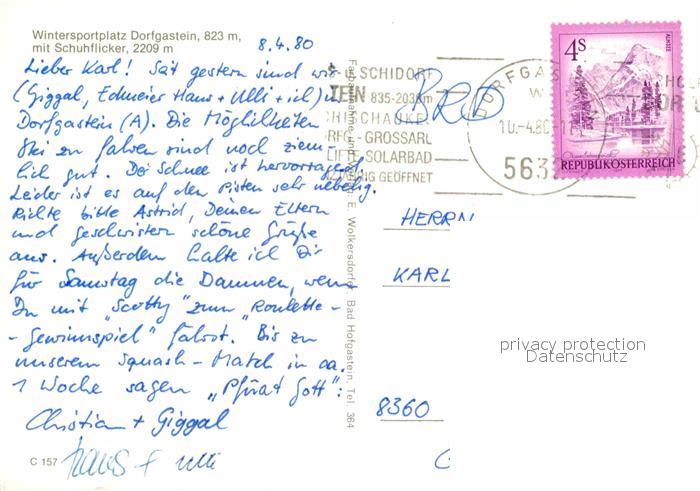 Wintersportplatz Dorfgastein, 823 m,
mit Schuhflicker, 2209 m
8.4.80
Lieber Karl! Seit gestern sind wir
(Giggal, Edmeier Hans + Ulli + ich) in
Dorfgastein (A). Die Möglichkeiten
Ski zu fahren sind noch ziem-
lich gut. Der Schnee ist hervorragend
Leider ist es auf den Pisten sehr nebelig.
Richte bitte Astrid, Deinen Eltern
und Geschwistern schöne Grüße
aus. Außerdem halte ich Dir
für Samstag die Daumen, wenn
Du mit "Scotty" zum "Roulette-
-Gewinnspiel" fährst. Bis zu
unserem Squash-Match in ca.
1 Woche sagen "Pfüat Gott":
Christian + Giggal
Hans + Ulli
C 157
E. Wolkersdorfer, Bad Hofgastein, Tel. 364
SCHIDORF
835-2033m
SCHAUKEL
GROSSARL
SOLARBAD
GEÖFFNET
BRD
DORFGAS
10.-4.80
563
4S
ALMSEE
REPUBLIK ÖSTERREICH
HERRN
KARL
privacy protection
Datenschutz
8360